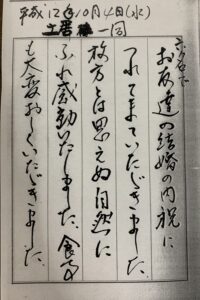 平成12年10月4日(水)
土居 一同
お友達の結婚の内祝に
つれてきていただきました。
枚方とは思えぬ自然に
ふれ感動いたしました。食事
も大変おいしくいただきました。